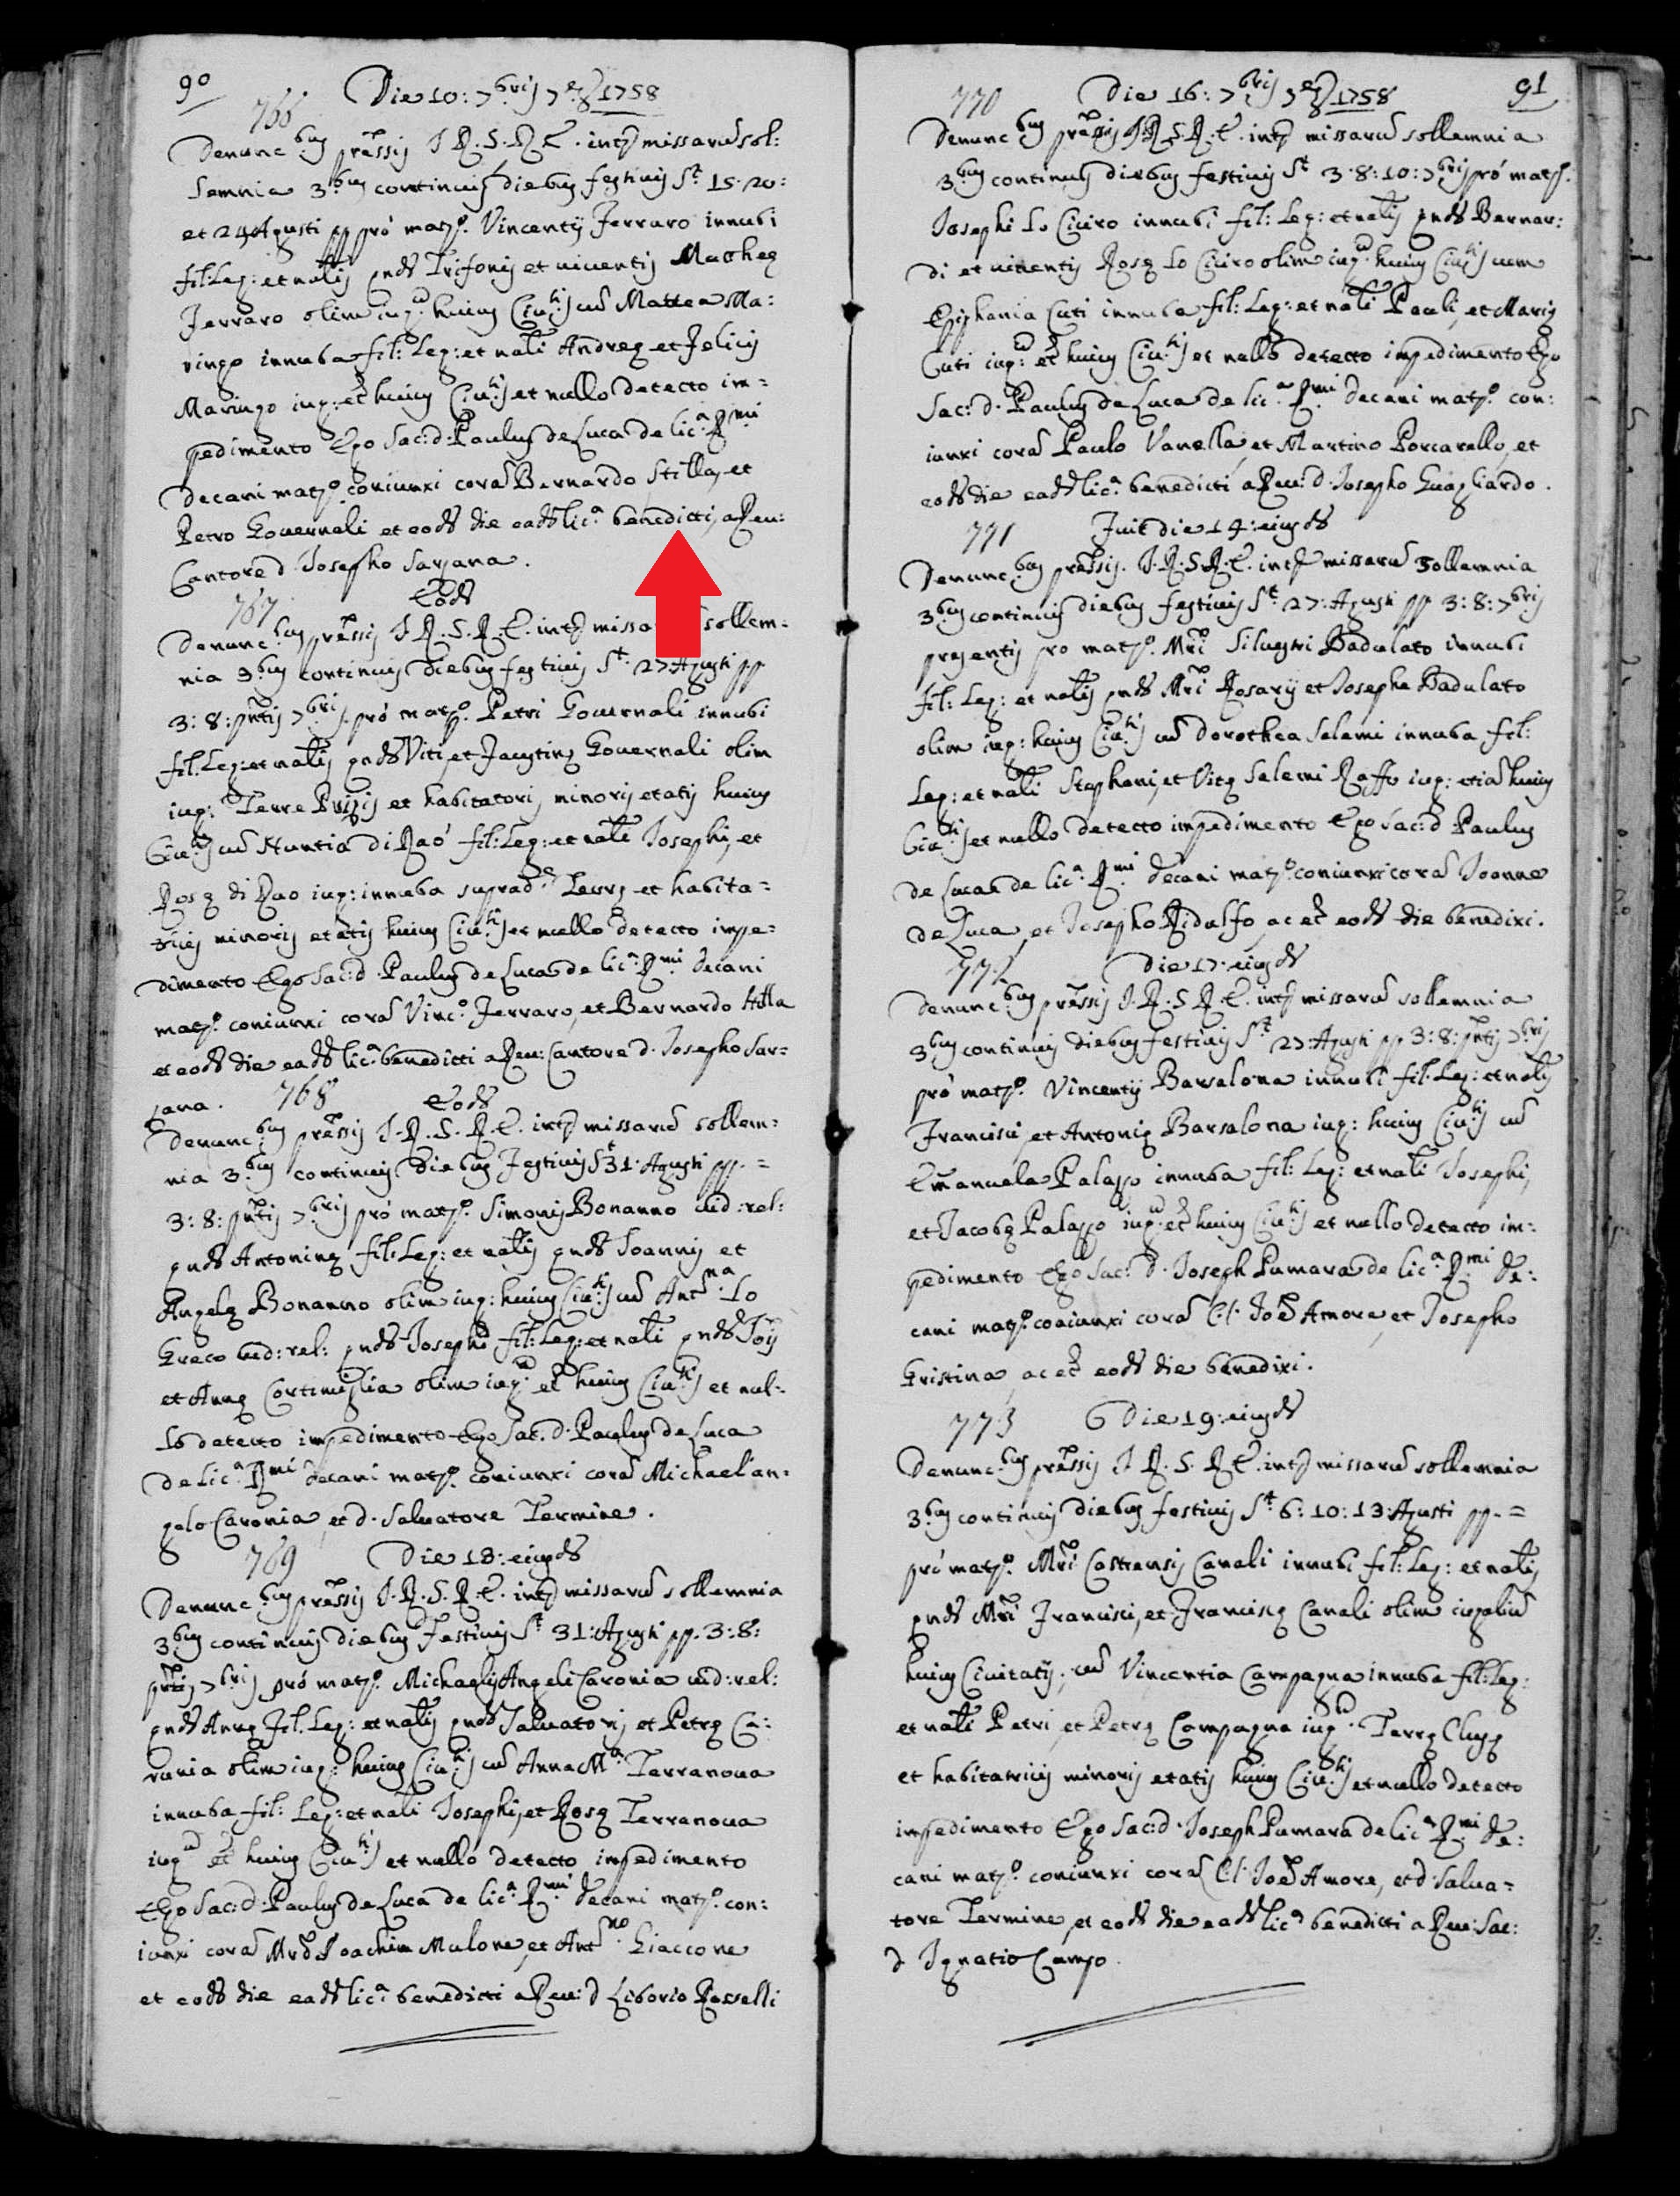 90
Die 10: 7bris 7e Ind 1758
766
Denunc:bus premissis I. R. S. R. E. inter missarum sol:
lemnia 3bus continuis diebus festivis St 15. 20:
et 24 Agusti pp pro matrio. Vincentij Ferraro innubi
fil: Leg: et nalis qndm Trifonis et viventis Macheq
Ferraro olim iug: huius Ciutis cum Mattea Ma:
ringo innuba fil: Leg: et nali Andreę et Felicis
Maringo iug: et huius Ciutis et nullo detecto im=
pedimento Ego Sac: d: Paulus de Luca de lica Rmi
Decani matrio. coniunxi coram Bernardo Stilla, et
Petro Governali et eodm die eadm lica benedicti, a Reu:
Cantore d. Josepho Saryana.
767 Eodm
Denunc:bus premissis I. R. S. R. E. inter missa sollem=
nia 3bus continuis diebus festivis St. 27 Agusti pp
3: 8: pntis 7bris. pro matrio. Petri Governali innubi
fil: Leg: et nalis qndm Viti, et Faustinę Governali olim
iug: Terre Prizis et habitatoris minoris etatis huius
Ciutis cum Nuntia di Rao fil: Leg: et nali Josephi, et
Rosę di Rao iug: innuba suprade Terrę et habita=
tricis minoris etatis huius Ciutis et nullo detecto impe=
dimento Ego Sac: d. Paulus de Luca de lica Rmi Decani
matrio. coniunxi coram Vinco. Ferraro, et Bernardo Stilla
et eodm die eadm lica benedicti a Reu: Cantore d. Josepho Sar=
yana.
768 Eodm
Denunc:bus premissis I. R. S. R. E. inter missarum sollem=
nia 3bus continuis diebus Festivis St 31. Agusti pp. =
3: 8: pntis 7bris pro matrio. Simonis Bonanno vid: rel:
qndm Antoninę fil: Leg: et nalis qndm Joannis et
Angelę Bonanno olim iug: huius Ciutis cum Antna. Lo
Greco vid: rel: qndm Josephi fil: Leg: et nali qndm Jois
et Annę Cortimiglia olim iug: et huius Ciutis et nul=
lo detecto impedimento Ego Sac. d. Paulus de Luca
de lica Rmi Decani matrio. coniunxi coram Michael'an=
gelo Caronia, et d. Salvatore Termine.
769 Die 18: eiusdm
Denunc:bus premissis I. R. S. R. E. inter missarum sollemnia
3bus continuis diebus Festivis St 31: Agusti pp. 3: 8:
pntis 7bris pro matrio. Michaelis Angeli Caronia vid: rel:
qndm Annę Fil: Leg: et nalis qndm Salvatoris et Petrę Ca:
ronia olim iug: huius Ciutis cum Anna Ma: Terranova
innuba fil: Leg: et nali Josephi, et Rosę Terranova
iug et huius Ciutis et nullo detecto impedimento
Ego Sac: d: Paulus de Luca de lica Rmi Decani matrio. con:
iunxi coram Mro Joachim Mulone, et Antno. Giaccone
et eodm die eadm lica benedicti a Reu: d Liborio Rosselli
91
Die 16: 7bris 7e Ind 1758
770
Denunc:bus premissis I. R. S. R. E. inter missarum sollemnia
3bus continuis diebus festivis St 3. 8: 10: 7bris pro matrio.
Josephi Lo Civiro innubi fil: Leg: et nalis qndm Bernar:
di et viventis Rosę Lo Civiro olim iug: huius Ciutis cum
Epiphania Cuti innuba fil: Leg: et nali Pauli, et Marię
Cuti iug: et huius Ciutis et nullo detecto impedimento Ego
Sac: d. Paulus de Luca de lica Rmi Decani matrio. con:
iunxi coram Paulo Vanella, et Martino Porcarello, et
eodm die eadm lica. benedicti a Reu: d. Josepho Guagliardo.
771 Fuit die 14: eiusdm
Denunc:bus premissis. I. R. S. R. E. inter missarum sollemnia
3bus continuis diebus festivis St 27: Agusti pp 3: 8: 7bris
presentis pro matrio. Mri Silvestri Badulato innubi
fil: Leg: et nalis qndm Mri Rosarij et Josepha Badulato
olim iug: huius Ciutis cum Dorothea Salemi innuba fil:
Leg: et nali Stephani, et Vitę Salemi Raffo iug: etiam huius
Ciutis et nullo detecto impedimento Ego Sac: d Paulus
de Luca de lica. Rmi Decani matrio. coniunxi coram Joanne
de Luca, et Josepho Ridulfo, ac et eodm die benedixi.
772 Die 17. eiusdm
Denunc:bus premissis I. R. S. R. E. inter missarum sollemnia
3bus continuis diebus festivis St 27: Agusti pp 3: 8: pntis 7bris
pro matrio. Vincentij Barsalona innubi fil: Leg: et nalis
Francisci, et Antonię Barsalona iug: huius Ciutis cum
Emanuela Palazzo innuba fil: Leg: et nali Josephi,
et Jacobę Palazzo iug: et huius Ciutis et nullo detecto im:
pedimento Ego Sac: d. Joseph Pumara de lica Rmi De:
cani matrio. coniunxi coram Cl: Joe Amore, et Josepho
Gristina, ac et eodm die benedixi.
773 6 Die 19: eiusdm
Denunc:bus premissis I. R. S. R. E. inter missarum sollemnia
3bus continuis diebus festivis St 6: 10: 13: Agusti pp. =
pro matrio. Mri Castrensis Canali innubi fil: Leg: et nalis
qndm Mri Francisci, et Franciscę Canali olim iugalium
huius Civitatis, cum Vincentia Campagna innuba fil: Leg:
et nali Petri, et Petrę Campagna iug. Terrę Clusę
et habitatricis minoris etatis huius Ciutis et nullo detecto
impedimento Ego Sac: d. Joseph Pumara de lica Rmi De:
cani matrio. coniunxi coram Cl: Joe Amore, et d. Salva=
tore Termine, et eodm die eadm lica benedicti a Reu: Sac:
d Ignatio Campo.